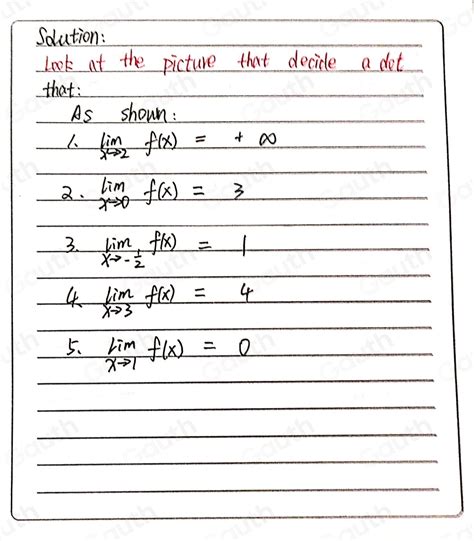 Solution:
Look at the picture that decide a dot
that:
As shown:
1. lim x→2 f(x) = +∞
2. lim x→0 f(x) = 3
3. lim x→-1/2 f(x) = 1
4. lim x→3 f(x) = 4
5. lim x→1 f(x) = 0